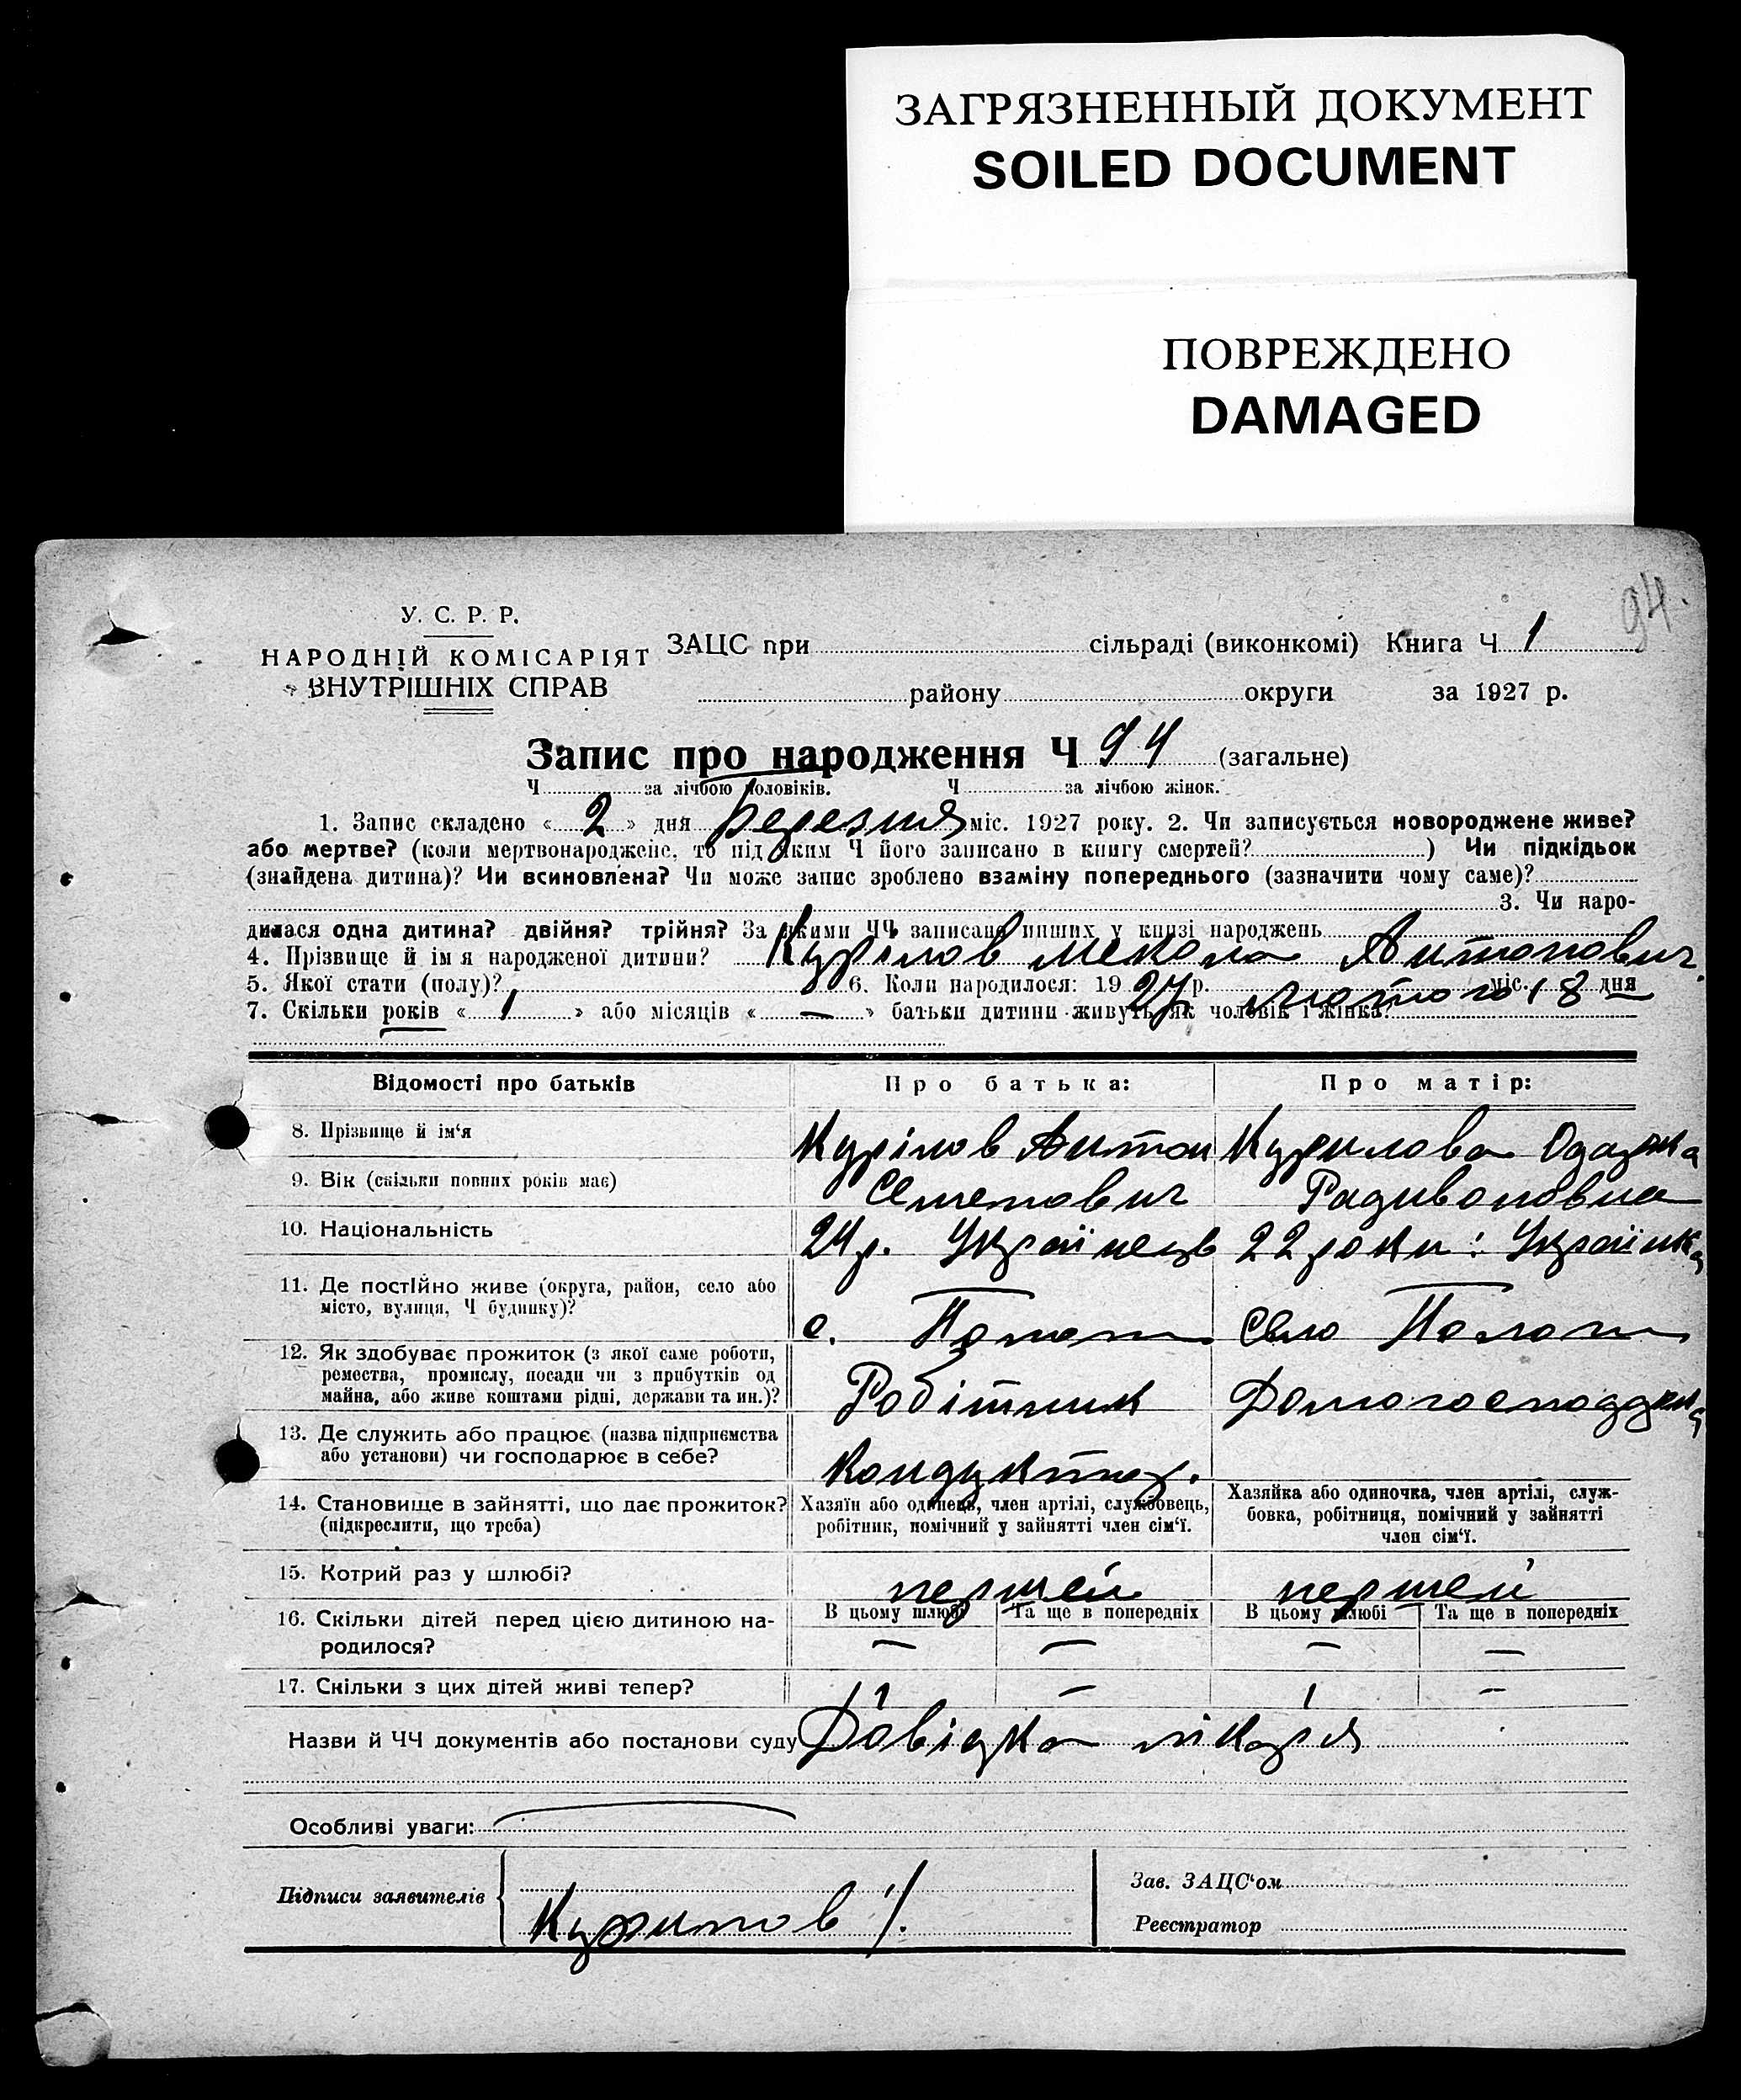 ЗАГРЯЗНЕННЫЙ ДОКУМЕНТ
SOILED DOCUMENT
ПОВРЕЖДЕНО
DAMAGED
94.
У. С. Р. Р.
НАРОДНІЙ КОМІСАРІЯТ
ВНУТРІШНІХ СПРАВ
ЗАЦС при сільраді (виконкомі) Книга Ч 1
району округи за 1927 р.
Запис про народження Ч 94 (загальне)
Ч за лічбою чоловіків. Ч за лічбою жінок.
1. Запис складено « 2 » дня Березня міс. 1927 року. 2. Чи записується новороджене живе?
або мертве? (коли мертвонароджене, то під яким Ч його записано в книгу смертей? ) Чи підкідьок
(знайдена дитина)? Чи всиновлена? Чи може запис зроблено взаміну попереднього (зазначити чому саме)?
3. Чи наро-
дилася одна дитина? двійня? трійня? За якими ЧЧ записано инших у книзі народжень
4. Прізвище й ім я народженої дитини? Курілов Мекола Антонович
5. Якої стати (полу)? 6. Коли народилося: 1927 р. Лютого міс. 18 дня
7. Скільки років « 1 » або місяців « — » батьки дитини живуть як чоловік і жінка?
Відомості про батьків
Про батька:
Про матір:
8. Прізвище й ім'я
Курілов Антон
Семенович
Курилова Одарка
Радивоновна
9. Вік (скільки повних років має)
10. Національність
24 р. Українець
22 роки: Українка
11. Де постійно живе (округа, район, село або
місто, вулиця, Ч будинку)?
с. Пологи
Село Пологи
12. Як здобуває прожиток (з якої саме роботи,
ремества, промислу, посади чи з прибутків од
майна, або живе коштами рідні, держави та ин.)?
Робітник
Домогосподарка
13. Де служить або працює (назва підприємства
або установи) чи господарює в себе?
Кондуктор.
14. Становище в зайнятті, що дає прожиток?
(підкреслити, що треба)
Хазяїн або одинець, член артілі, службовець,
робітник, помічний у зайнятті член сім'ї.
Хазяйка або одиночка, член артілі, служ-
бовка, робітниця, помічний у зайнятті
член сім'ї.
15. Котрий раз у шлюбі?
першей
першей
16. Скільки дітей перед цією дитиною на-
родилося?
В цьому шлюбі Та ще в попередніх В цьому шлюбі Та ще в попередніх
— — — —
17. Скільки з цих дітей живі тепер?
1 — 1 —
Назви й ЧЧ документів або постанови суду Довідка лікаря
Особливі уваги:
Підписи заявителів
Курилов
Зав. ЗАЦС'ом
Реєстратор